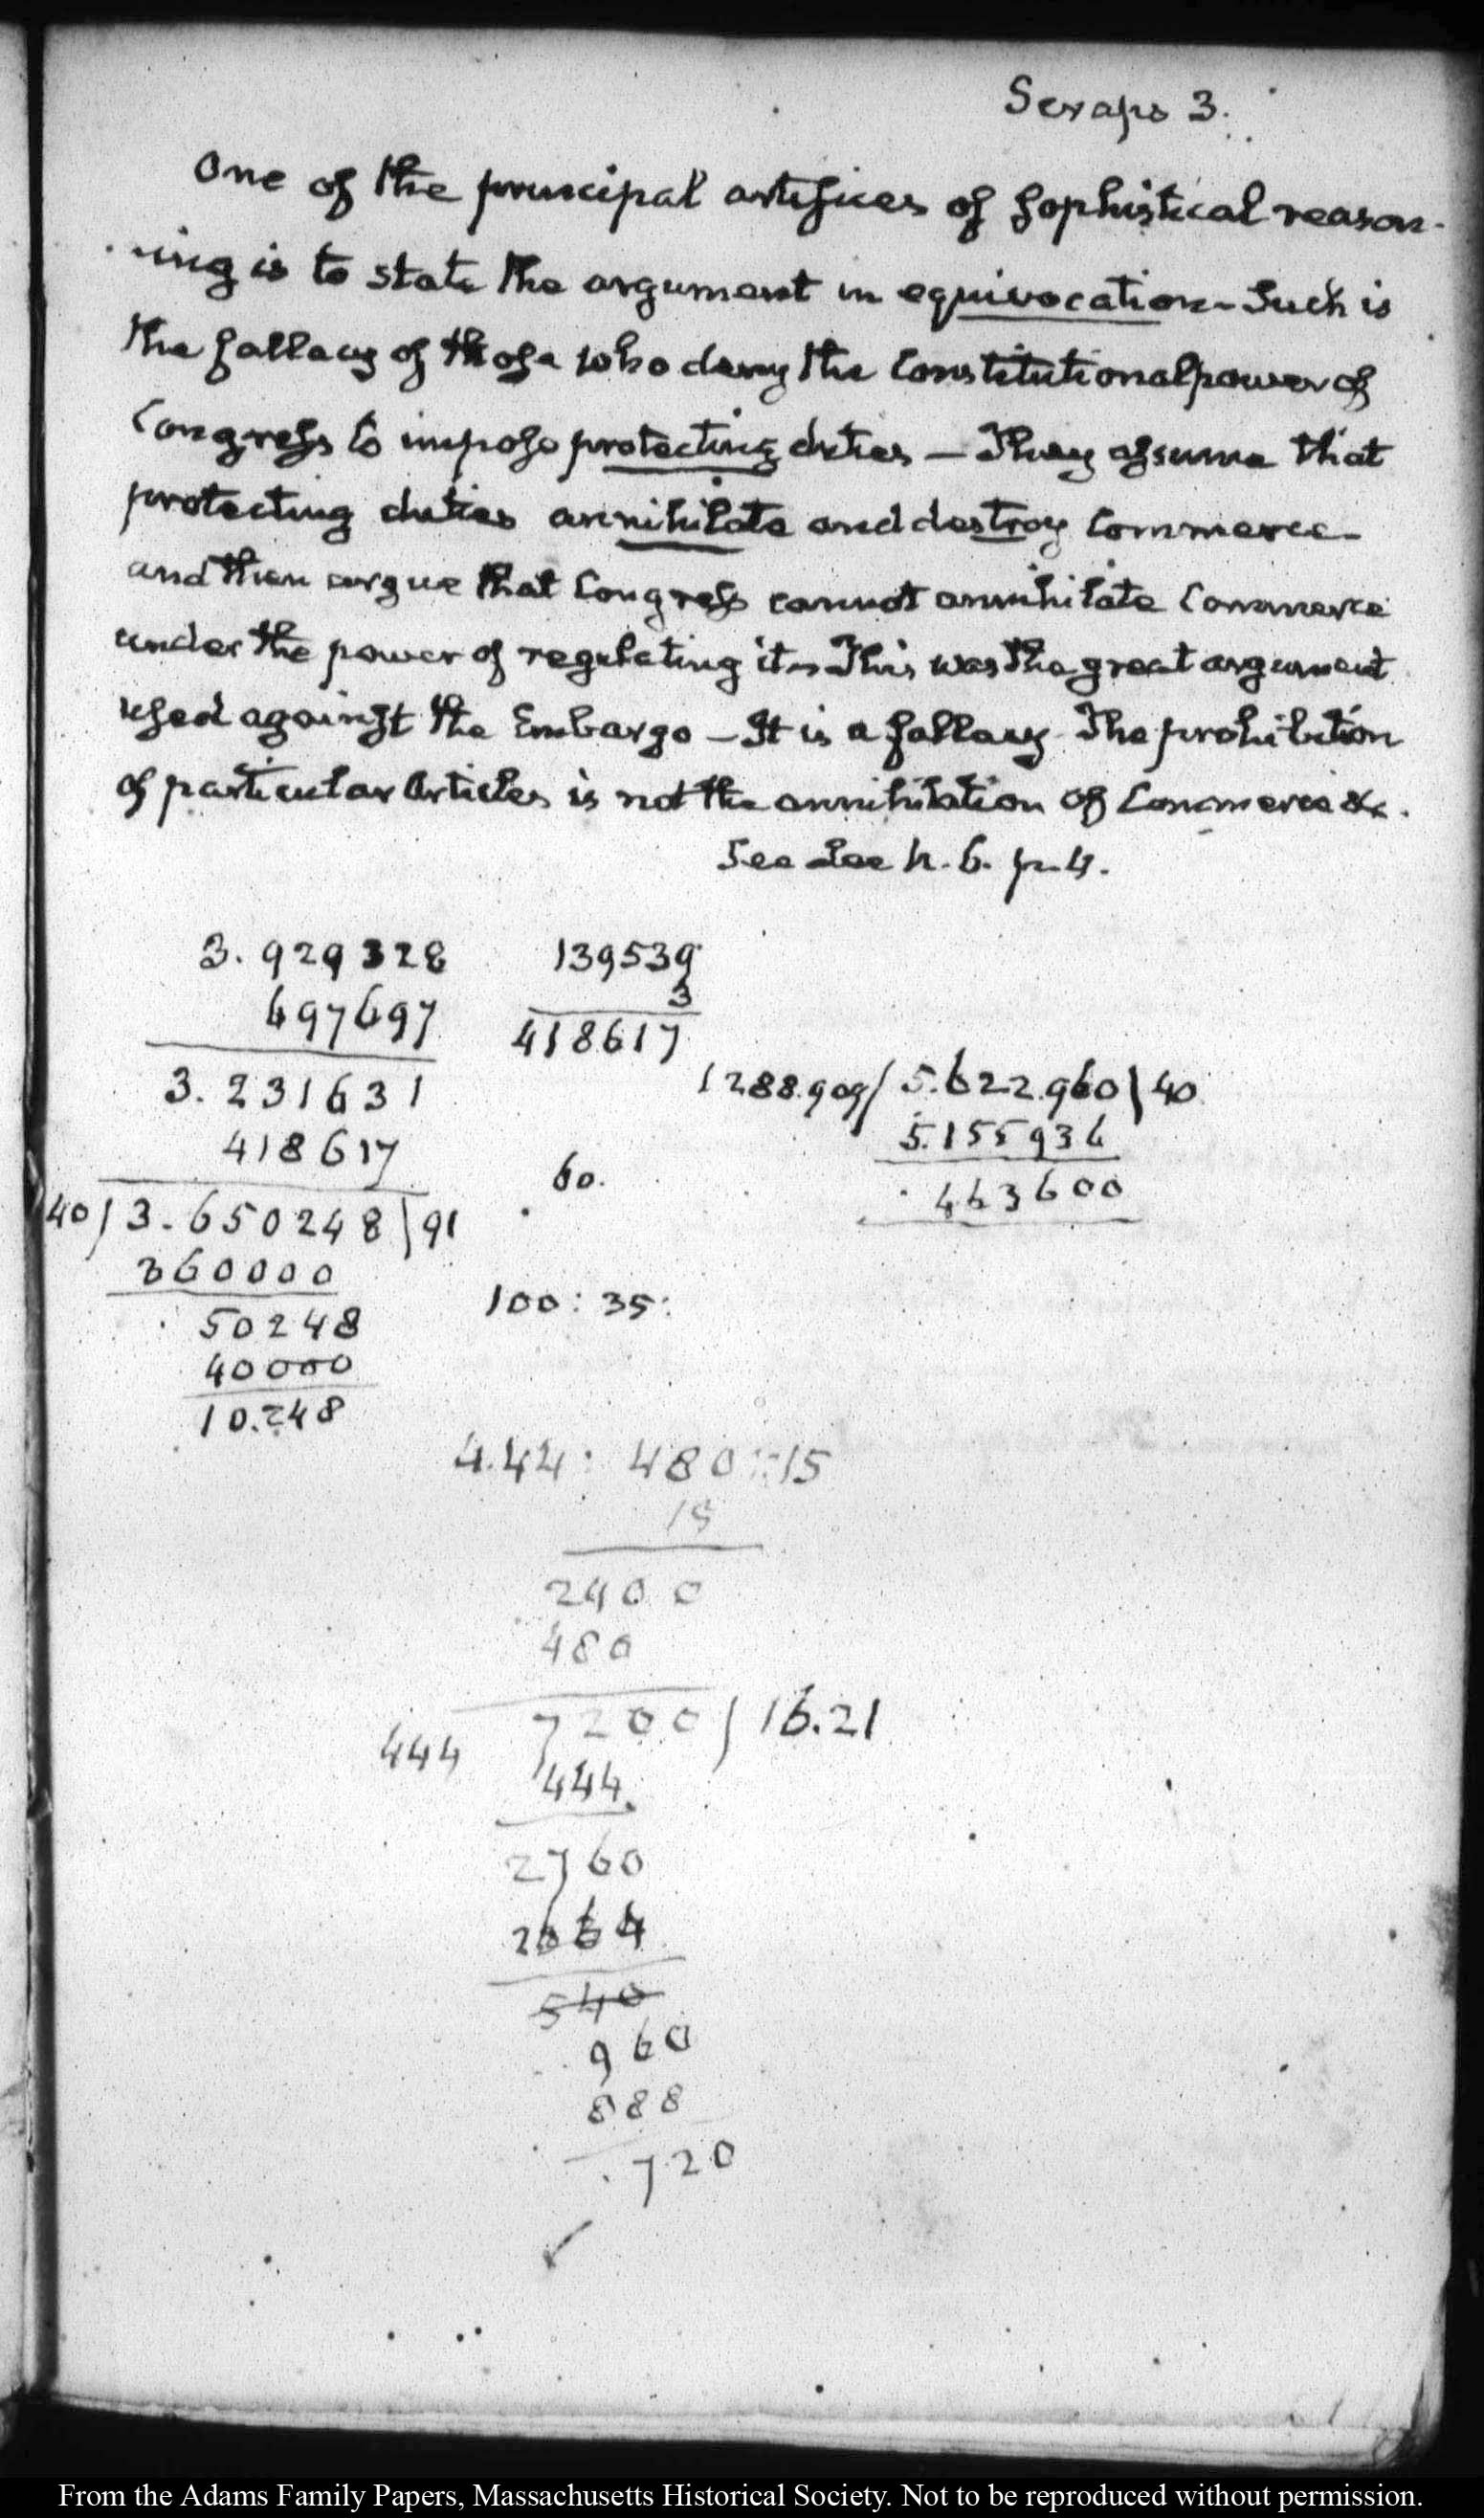 Scraps 3.
One of the principal artifices of sophistical reason-
ning is to state the argument in equivocation - Such is
the fallacy of those who deny the Constitutional power of
Congress to impose protecting duties — They assume that
protecting duties annihilate and destroy Commerce -
and then argue that Congress cannot annihilate Commerce
under the power of regulating it - This was the great argument
used against the Embargo — It is a fallacy The prohibition
of particular Articles is not the annihilation of Commerce &c.
See n. 6. p. 4.
3. 929 328 139539
697697 3
3. 231631 418617
418617 1288.909/ 5.622.960 | 40
60. 5.155 936
40) 3.650248 | 91 463600
360000
50248 100 : 35:
40000
10.248
4.44 : 480 :: 15
15
2400
480
444 7200 / 16.21
444.
2760
2664
540
960
888
720
From the Adams Family Papers, Massachusetts Historical Society. Not to be reproduced without permission.